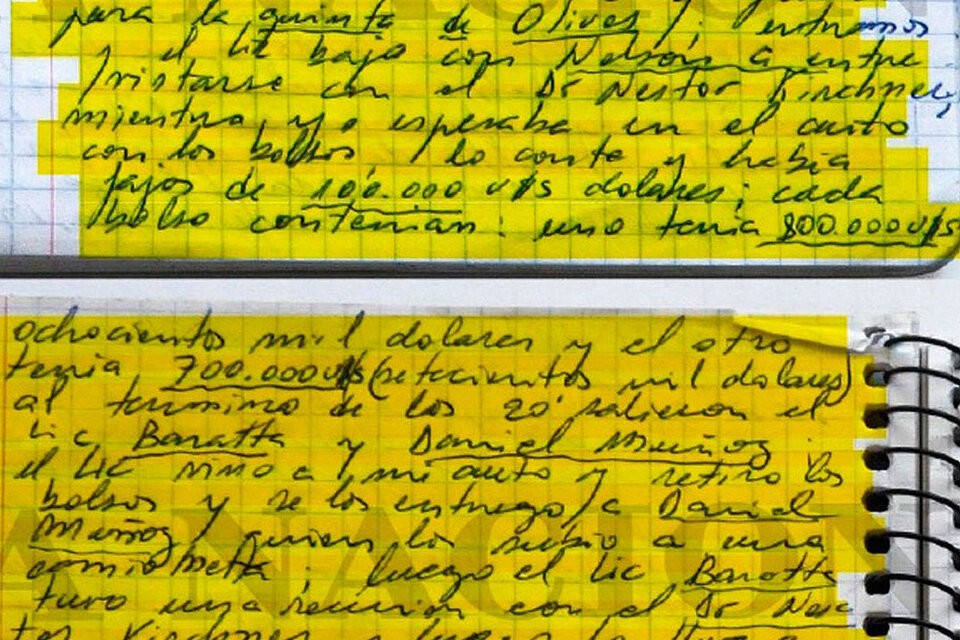 para la quinta de Olivos; entramos
y el Lic bajo con Nelson a entre
vistarse con el Dr Nestor Kirchner,
mientras yo esperaba en el auto
con los bolsos, lo conte y habia
fajos de 100.000 u$s dolares; cada
bolso contenian: uno tenia 800.000 u$s
ochocientos mil dolares y el otro
tenia 700.000 u$s (setecientos mil dolares)
al termino de los 20' salieron el
Lic Baratta y Daniel Muñoz
el Lic vino a mi auto y retiro los
bolsos y se los entrego a Daniel
Muñoz, quien los subio a una
camioneta; luego el Lic Baratta
tuvo una reunion con el Dr Nes
tor Kirchner y luego lo
LA NACION